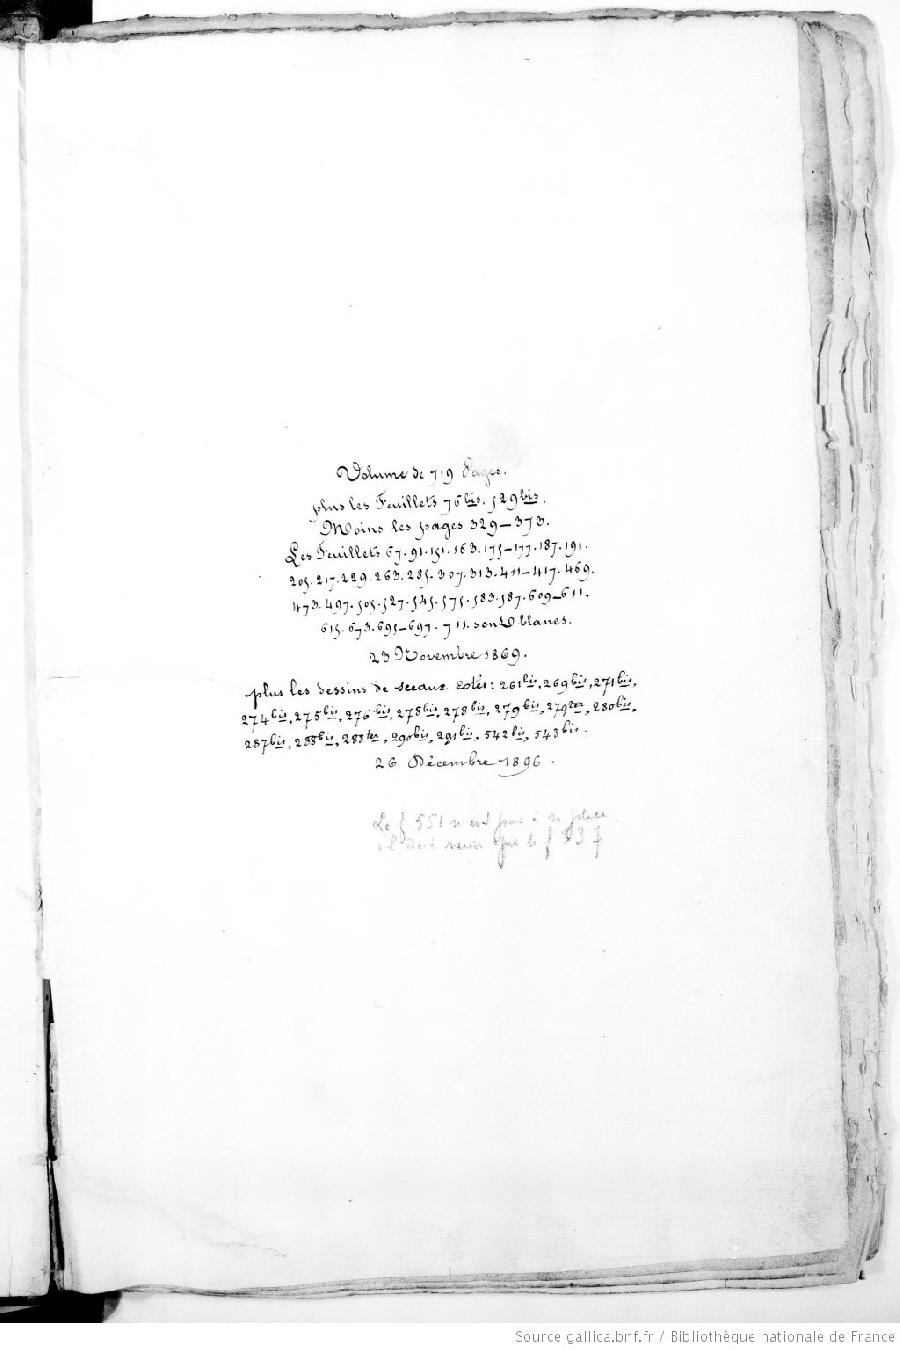 Volume de 719 Pages.
plus les Feuillets 76 bis. 529 bis.
Moins les pages 329–373.
Les Feuillets 67. 91. 151. 163. 175–177. 187. 191.
205. 217. 229. 263. 285. 307. 313. 411–417. 469.
473. 497. 505. 527. 545. 575. 583. 587. 609–611.
615. 673. 695–697. 711. sont blancs.
23 Novembre 1869.
plus les dessins de sceaux cotés : 261 bis, 269 bis, 271 bis,
274 bis, 275 bis, 276 bis, 278 bis, 278 bis, 279 bis, 279 ter, 280 bis,
287 bis, 288 bis, 288 ter, 290 bis, 291 bis, 542 bis, 543 bis.
26 Décembre 1896.
Le f 551 n'est pas à sa place
il doit venir le f 537
Source gallica.bnf.fr / Bibliothèque nationale de France